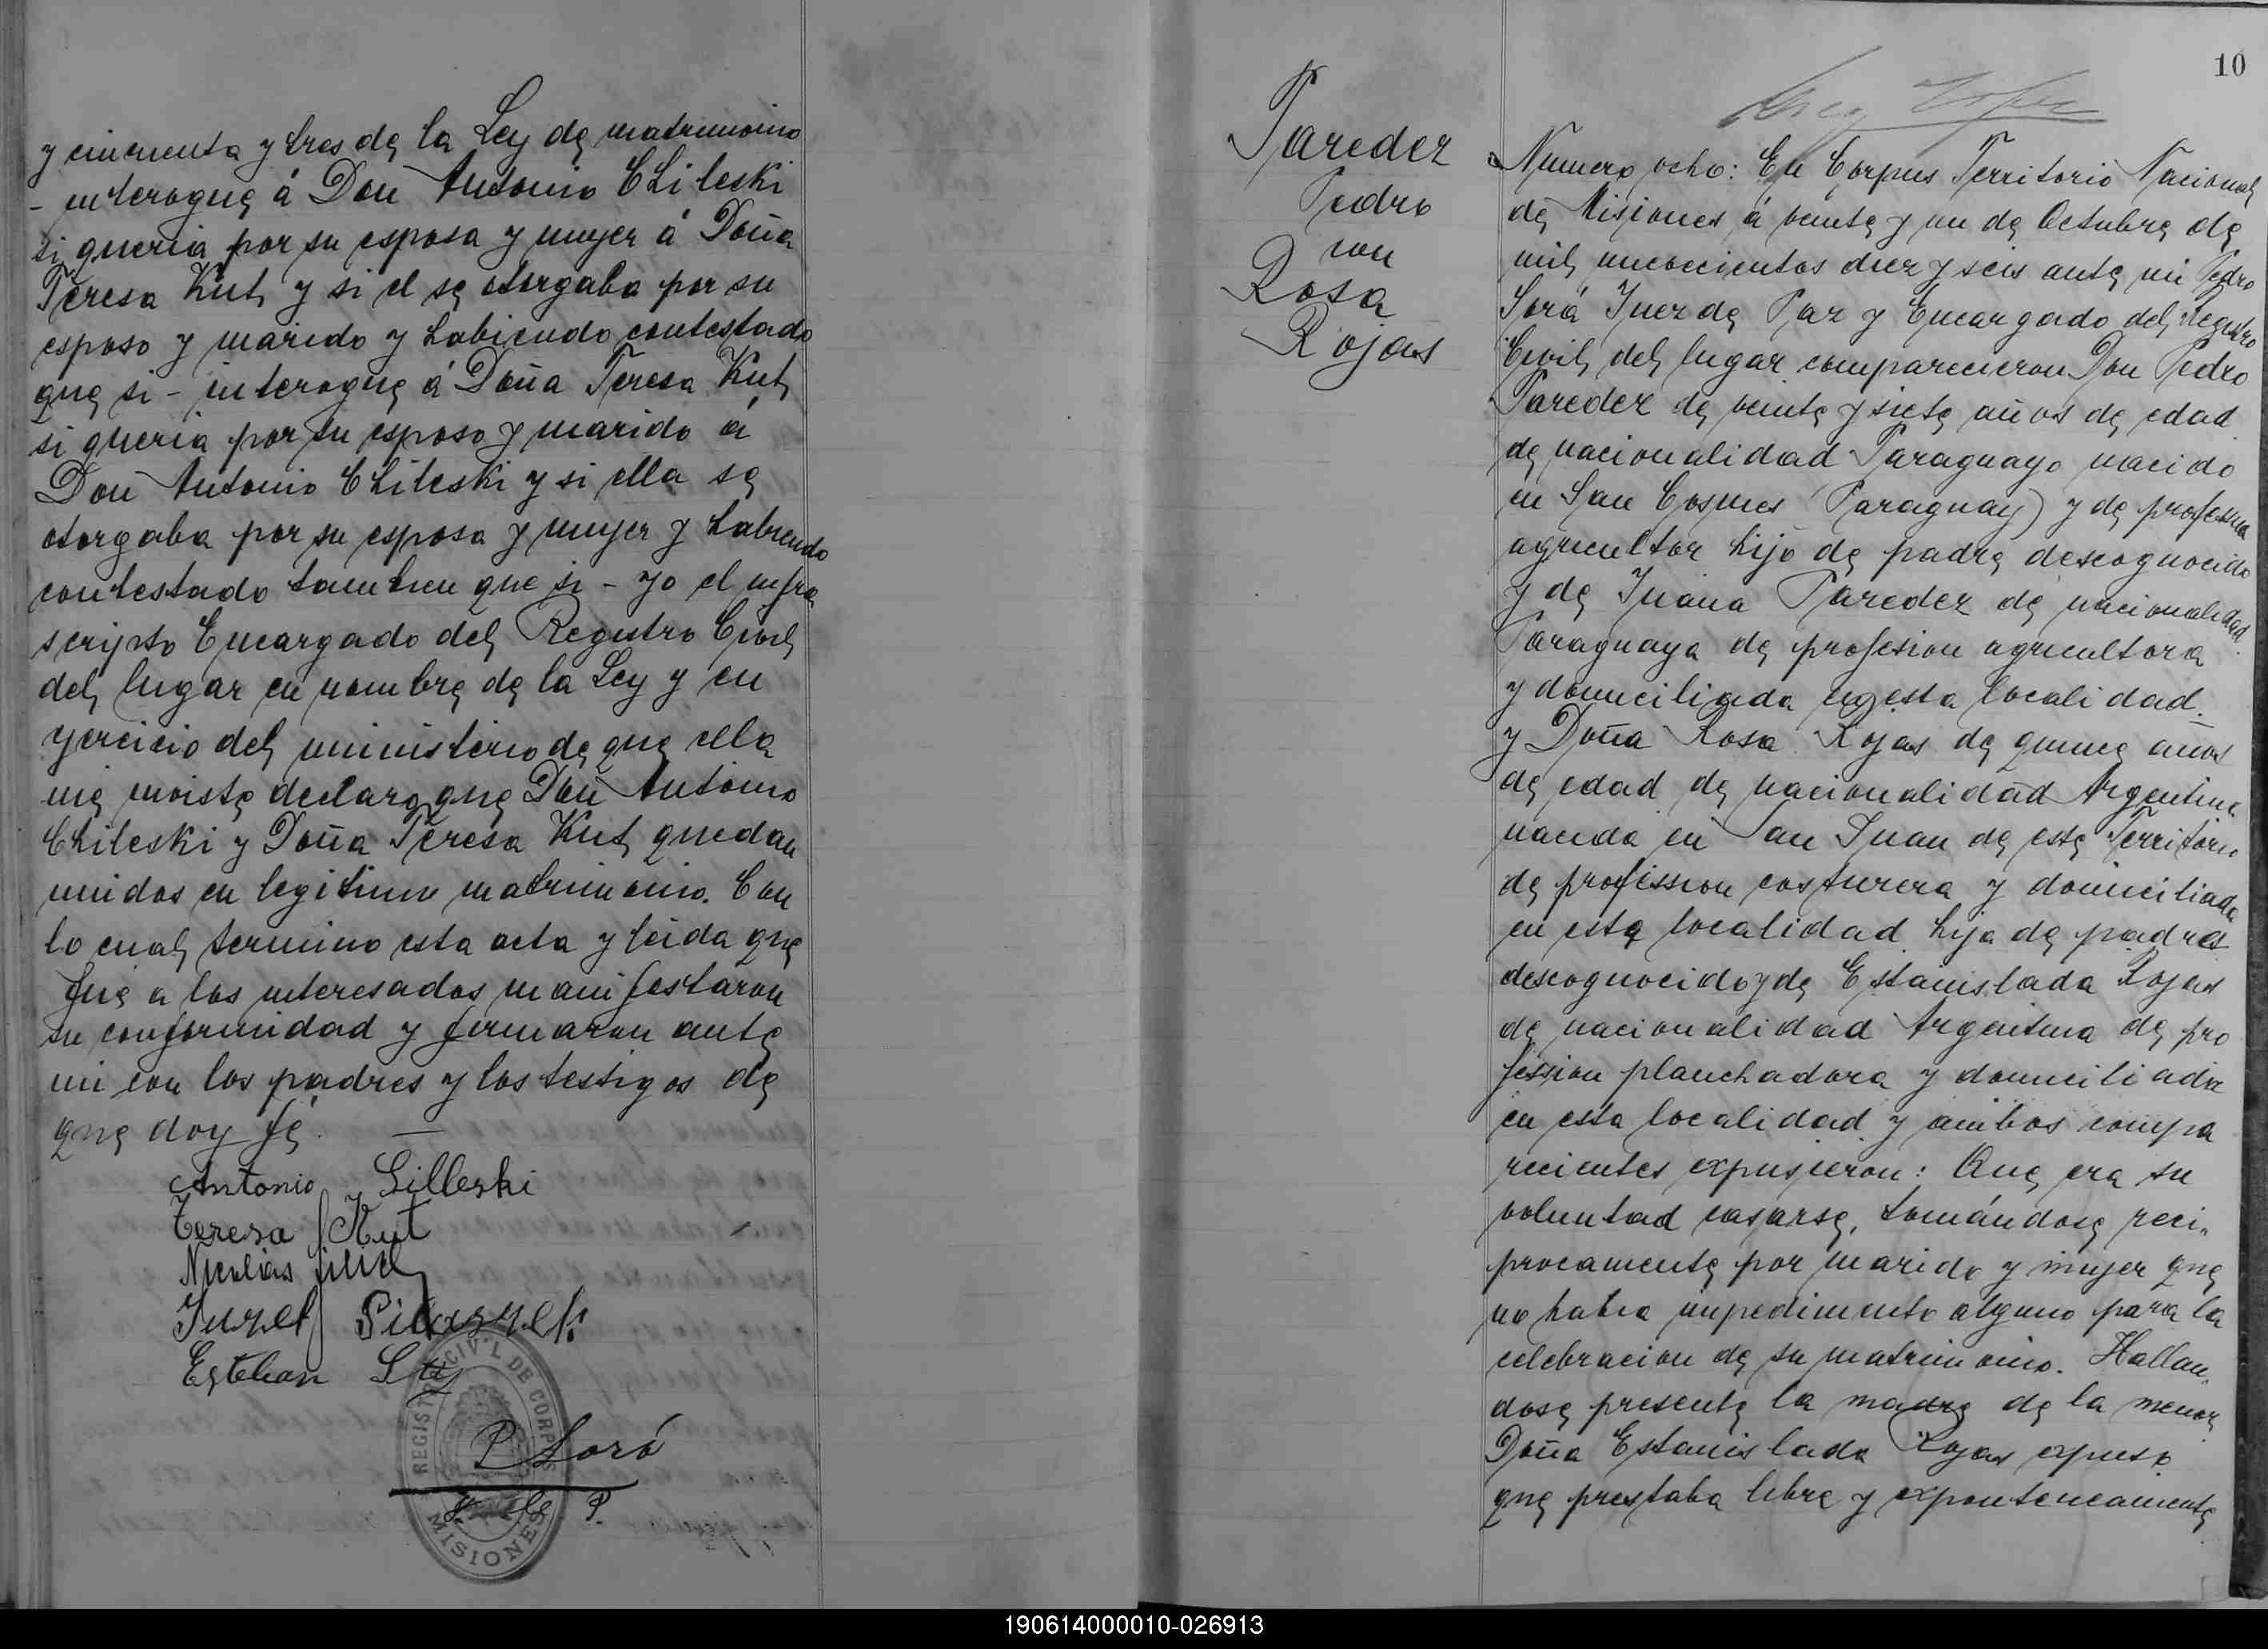 y cincuenta y tres de la Ley de matrimonio
- interogue á Don Antonio Chileski
si queria por su esposa y mujer á Doña
Teresa Kut y si el se otorgaba por su
esposo y marido y habiendo contestado
que si - interogue á Doña Teresa Kut
si queria por su esposo y marido á
Don Antonio Chileski y si ella se
otorgaba por su esposa y mujer y habiendo
contestado tambien que si - yo el infra
scripto Encargado del Registro Civil
del lugar en nombre de la Ley y en
yercicio del ministerio de que ella
me inviste declaro que Don Antonio
Chileski y Doña Teresa Kut quedan
unidos en legitimo matrimonio. Con
lo cual termino esta acta y leida que
fue a los interesados manifestaron
su conformidad y firmaron ante
mi con los padres y los testigos de
que doy fe.
Antonio Lilleski
Teresa Kut
Nicolias
Juzef
Esteban
REGISTRO CIVIL DE CORPUS
MISIONES
P. Sorá
J. de P.
10
Paredez
Pedro
con
Rosa
Rojas
Numero ocho: En Corpus Territorio Nacional
de Misiones á veinte y un de Octubre de
mil nuevecientos diez y seis ante mi Pedro
Sorá Juez de Paz y Encargado del Registro
Civil del lugar comparecieron Don Pedro
Paredez de veinte y siete años de edad
de nacionalidad Paraguayo nacido
en San Cosmes (Paraguay) y de profession
agricultor hijo de padre descognocido
y de Juana Paredez de nacionalidad
Paraguaya de profesion agricultora
y domiciliada en esta localidad.
y Doña Rosa Rojas de quince años
de edad de nacionalidad Argentina
nacida en San Juan de este Territorio
de profession costurera y domiciliada
en esta localidad hija de padres
descognocido y de Estanislada Rojas
de nacionalidad Argentina de pro
fession planchadora y domiciliada
en esta localidad y ambos compa
recientes expusieron: Que era su
voluntad casarse, tomándose reci-
procamente por marido y mujer que
no habia impedimento alguno para la
celebracion de su matrimonio. Hallan
dose presente la madre de la menor
Doña Estanislada Rojas expuso
que prestaba libre y exponteneamente
190614000010-026913